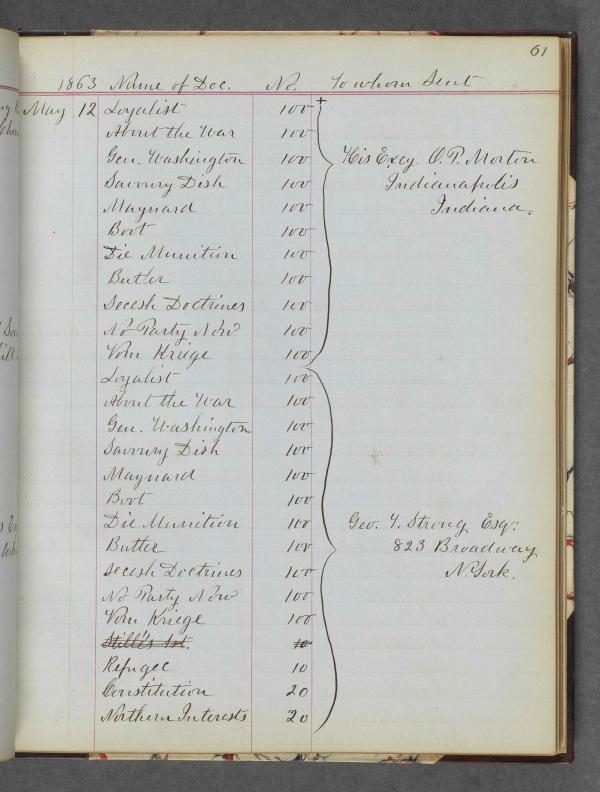 61
1863 Name of Doc. No. To whom Sent
May 12 Loyalist 100
About the War 100
Gen. Washington 100
Savoury Dish 100
Maynard 100
Boot 100
Die Munition 100
Butler 100
Secesh Doctrines 100
No Party Now 100
Vom Kriege 100
His Excy. O. P. Morton
Indianapolis
Indiana.
Loyalist 100
About the War 100
Gen. Washington 100
Savoury Dish 100
Maynard 100
Boot 100
Die Munition 100
Butler 100
Secesh Doctrines 100
No Party Now 100
Vom Kriege 100
Stillé's 1st. 10
Refugee 10
Constitution 20
Northern Interests 20
Geo. T. Strong Esq.
823 Broadway
N. York.